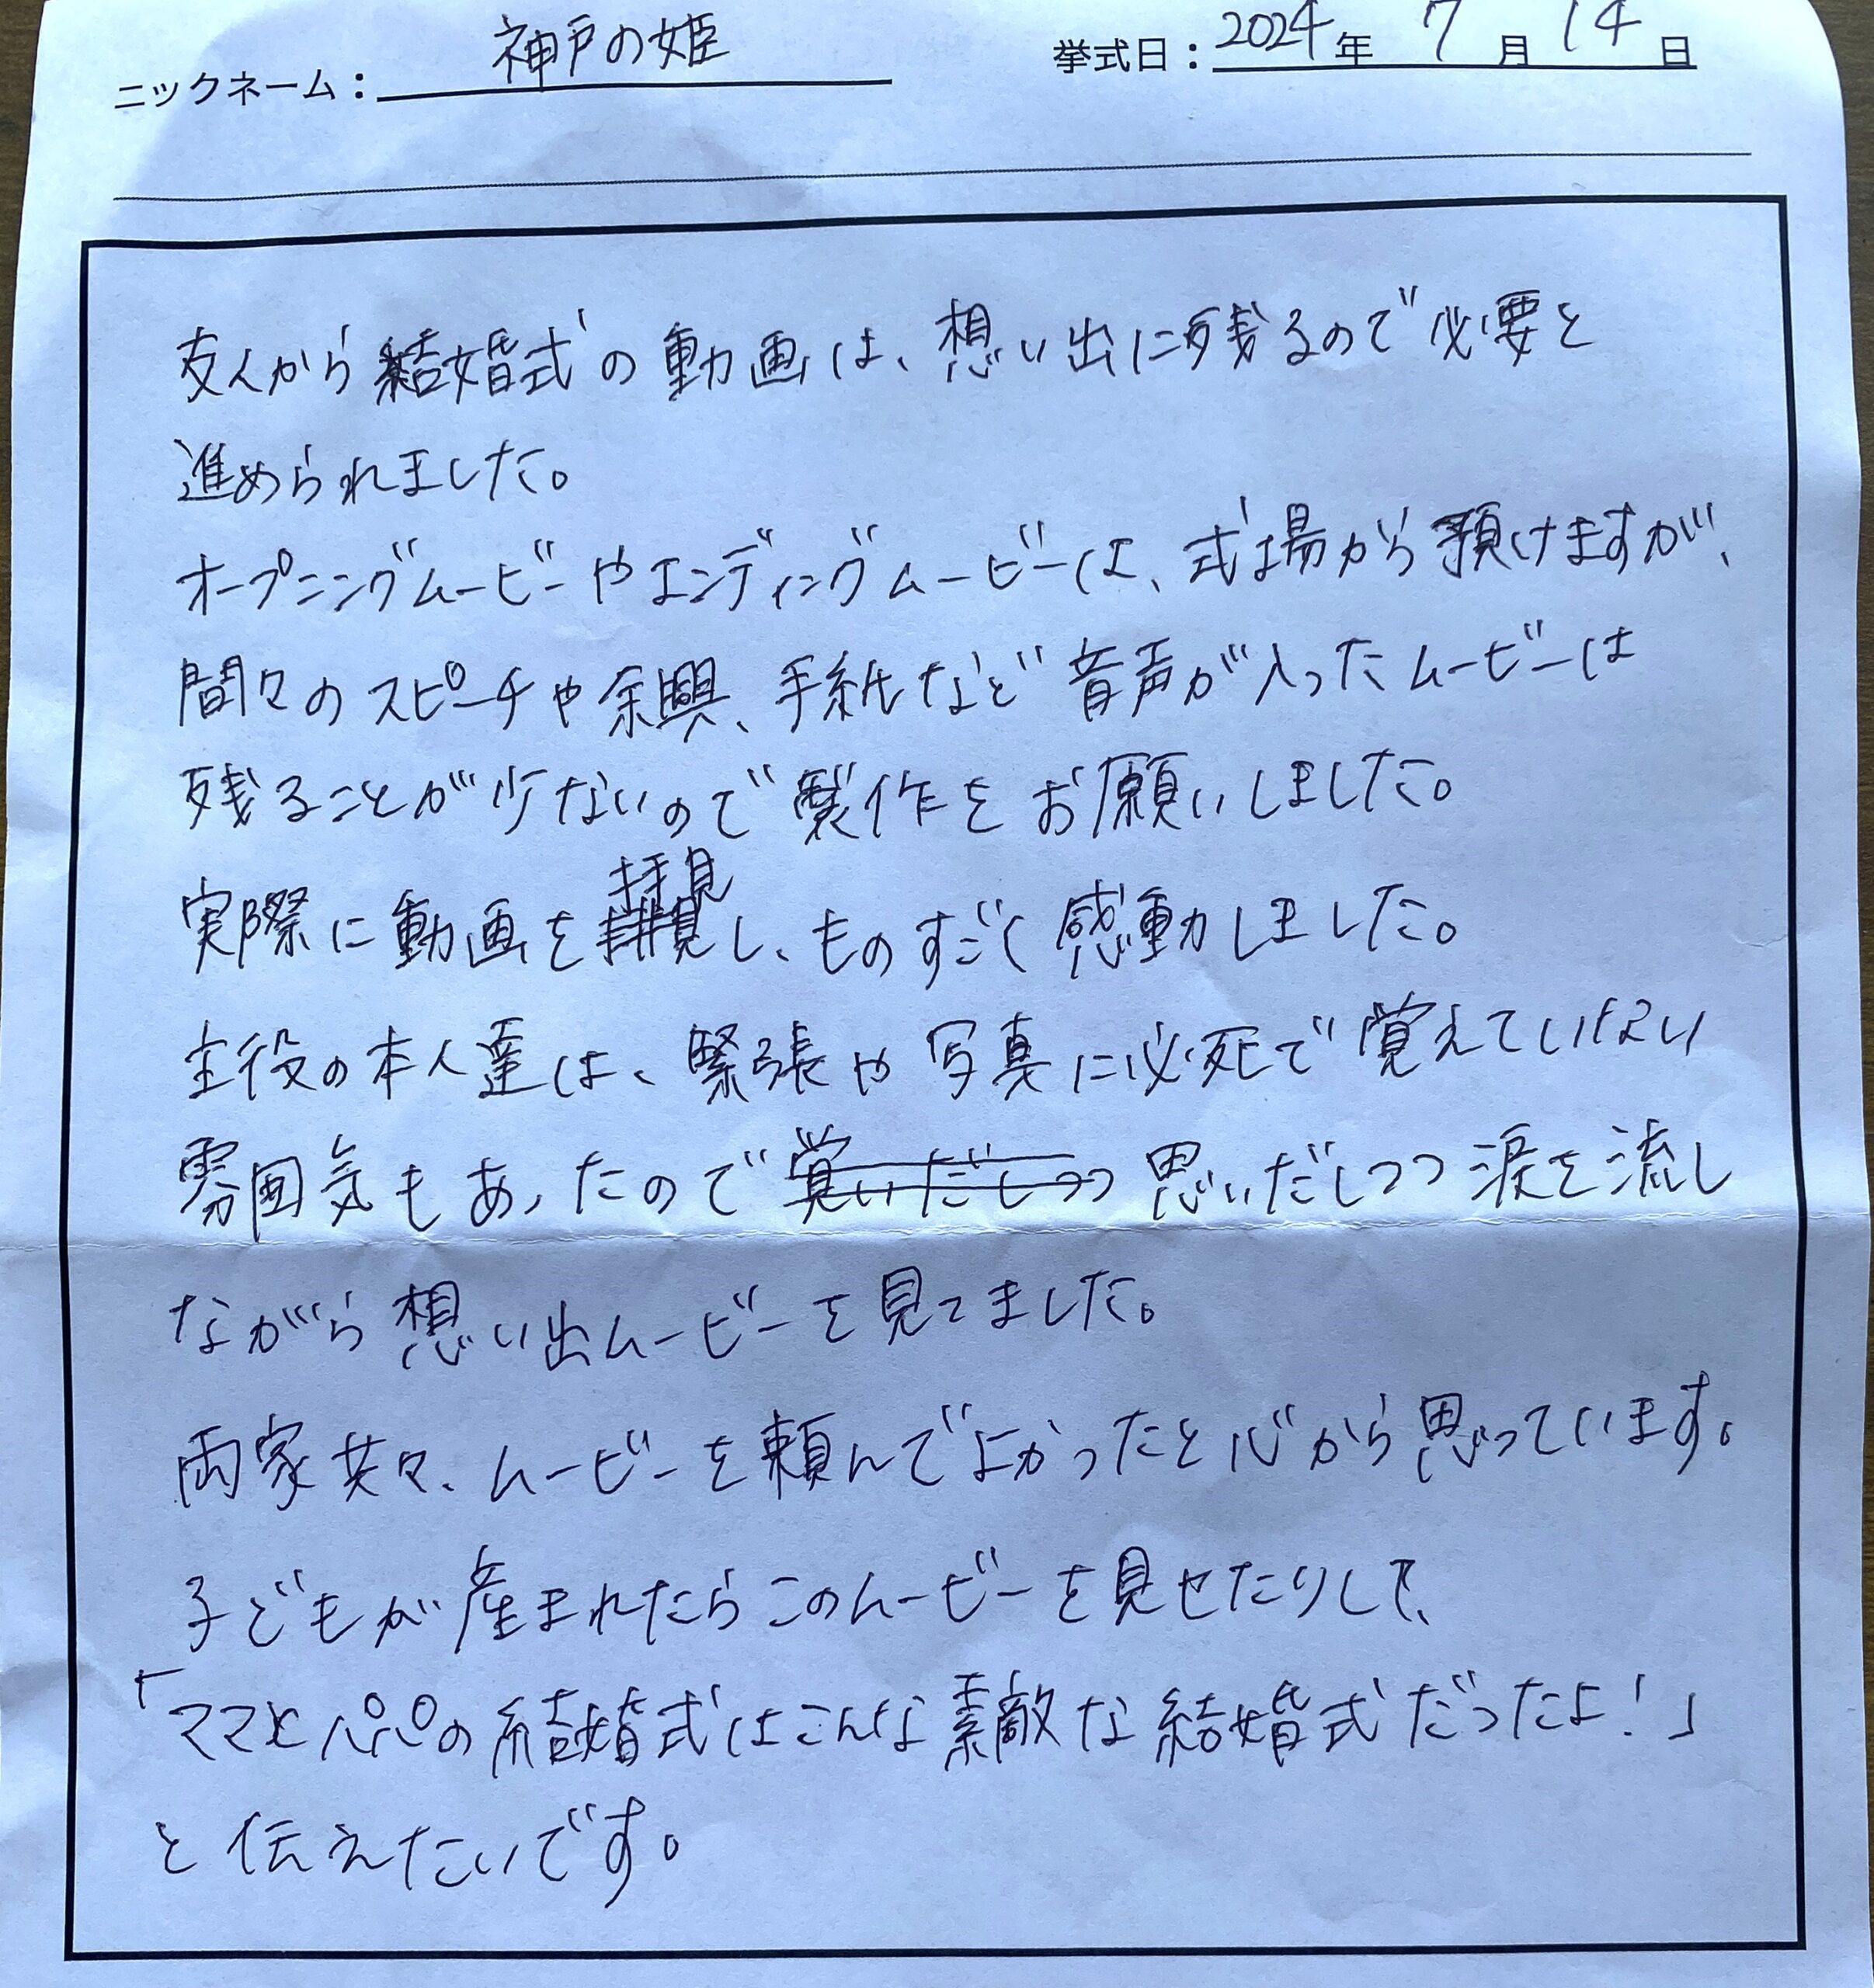 ニックネーム：神戸の姫 挙式日：2024年7月14日
友人から結婚式の動画は、想い出に残るので必要と
進められました。
オープニングムービーやエンディングムービーは、式場から預けますが、
間々のスピーチや余興、手紙など音声が入ったムービーは
残ることが少ないので製作をお願いしました。
実際に動画を拝見し、ものすごく感動しました。
主役の本人達は、緊張や写真に必死で覚えていない
雰囲気もあったので覚いだしつつ思いだしつつ涙を流し
ながら想い出ムービーを見てました。
両家共々、ムービーを頼んでよかったと心から思っています。
子どもが産まれたらこのムービーを見せたりして、
「ママとパパの結婚式はこんな素敵な結婚式だったよ！」
と伝えたいです。